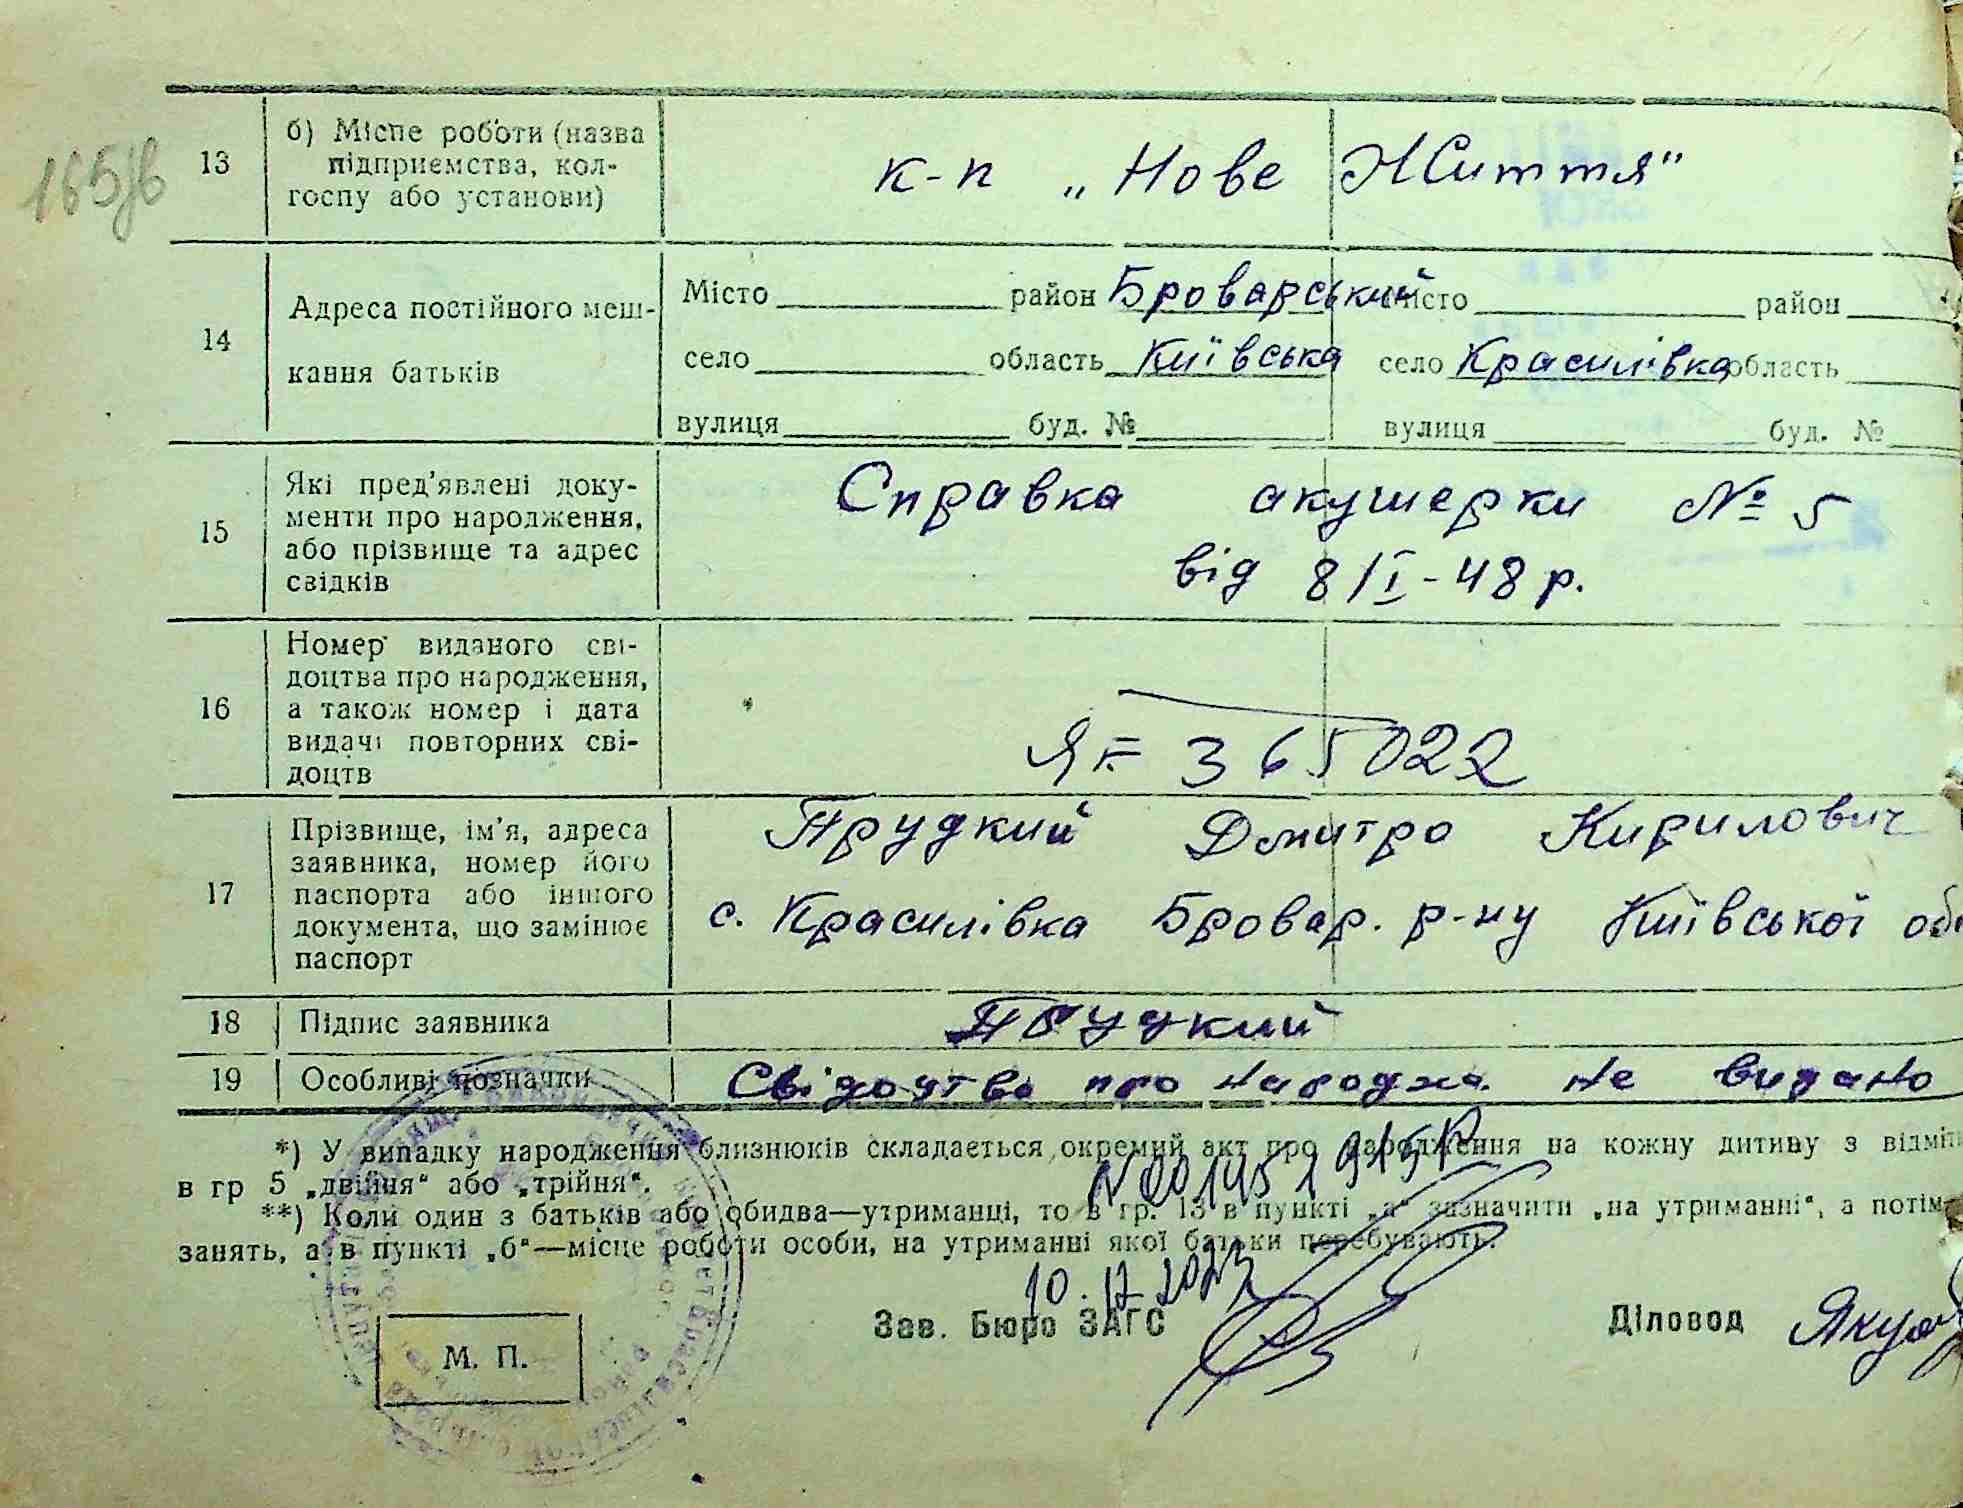 165зв
13
б) Місце роботи (назва
підприємства, кол-
госпу або установи)
к-п „Нове Життя"
14
Адреса постійного меш-
кання батьків
Місто район Броварський Місто район
село область Київська село Красилівка область
вулиця буд. № вулиця буд. №
15
Які пред'явлені доку-
менти про народження,
або прізвище та адрес
свідків
Справка акушерки № 5
від 8/I-48 р.
16
Номер виданого сві-
доцтва про народження,
а також номер і дата
видачі повторних сві-
доцтв
365022
17
Прізвище, ім'я, адреса
заявника, номер його
паспорта або іншого
документа, що замінює
паспорт
Прудкий Дмитро Кирилович
с. Красилівка Бровар. р-ну Київської об
18
Підпис заявника
Прудкий
19
Особливі позначки
Свідоцтво про народж. не видано
*) У випадку народження близнюків складається окремий акт про народження на кожну дитину з відміт
в гр 5 „двійня" або „трійня".
**) Коли один з батьків або обидва—утриманці, то в гр. 13 в пункті „а" зазначити „на утриманні", а потім
занять, а в пункті „б"—місце роботи особи, на утриманні якої батьки перебувають.
Зав. Бюро ЗАГС
Діловод
М. П.